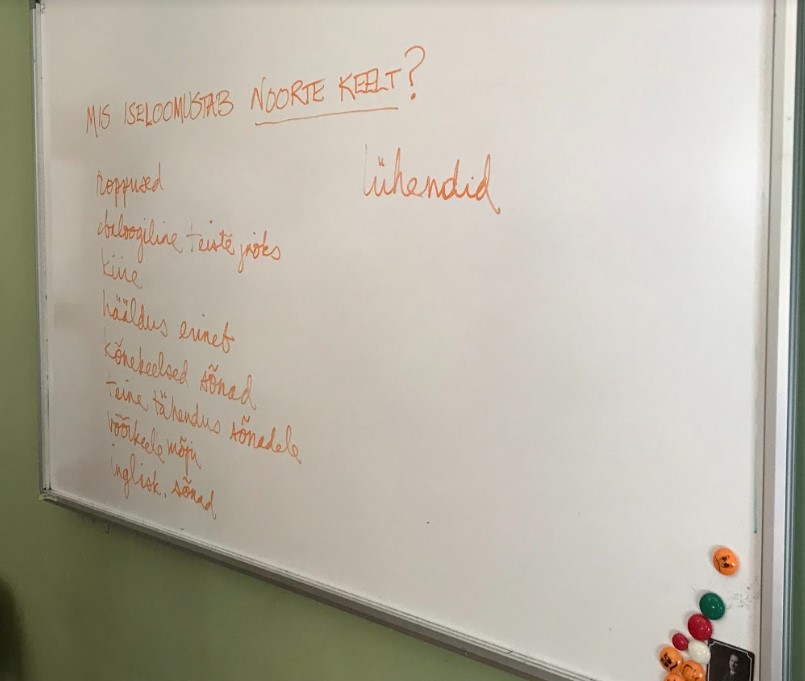 MIS ISELOOMUSTAB NOORTE KEELT?
roppused
ebaloogiline teiste jaoks
kiire
hääldus erineb
kõnekeelsed sõnad
teine tähendus sõnadele
võõrkeele mõju
inglisk. sõnad
lühendid